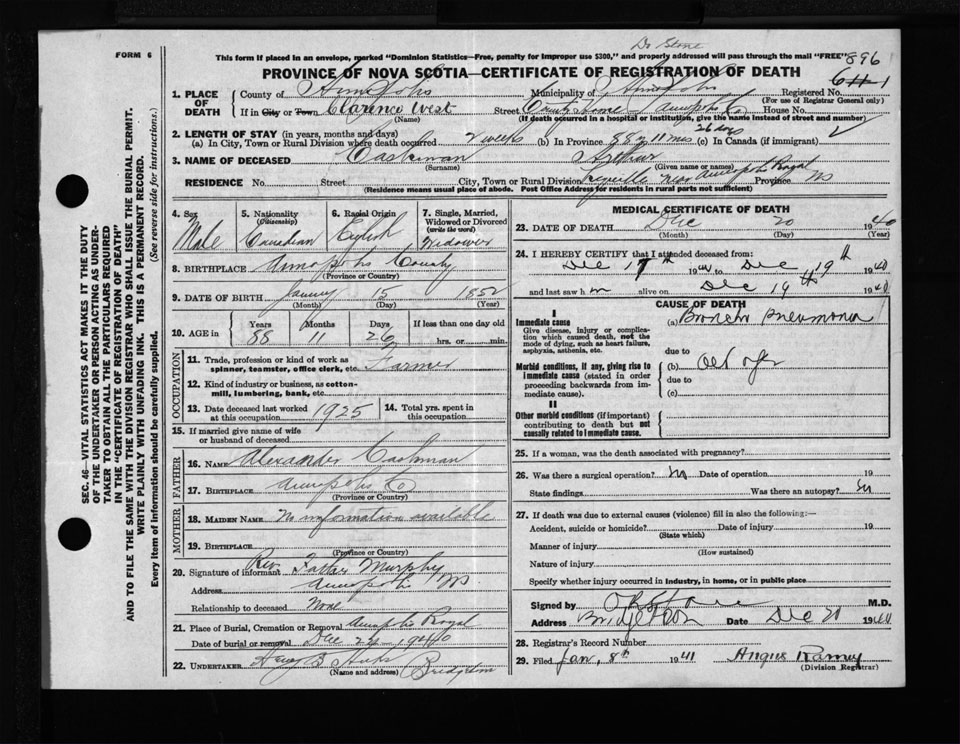 FORM 6
Dr Stone
This form if placed in an envelope, marked "Dominion Statistics—Free, penalty for improper use $300," and properly addressed will pass through the mail "FREE" 896
PROVINCE OF NOVA SCOTIA—CERTIFICATE OF REGISTRATION OF DEATH
1. PLACE OF DEATH County of Annapolis Municipality of Annapolis Registered No.
(For use of Registrar General only)
If in City or Town Clarence West Street County Home Annapolis Co House No.
(Name) (If death occurred in a hospital or institution, give the name instead of street and number)
26 days
2. LENGTH OF STAY (in years, months and days)
(a) In City, Town or Rural Division where death occurred 2 weeks (b) In Province 88 y 11 mos (c) In Canada (if immigrant)
3. NAME OF DECEASED Cashman Arthur
(Surname) (Given name or names)
RESIDENCE No. Street City, Town or Rural Division near Annapolis Royal Province NS
(Residence means usual place of abode. Post Office Address for residents in rural parts not sufficient)
4. Sex Male
5. Nationality (Citizenship) Canadian
6. Racial Origin English
7. Single, Married, Widowed or Divorced (write the word) Widower
8. BIRTHPLACE Annapolis County
(Province or Country)
9. DATE OF BIRTH January 15 1852
(Month) (Day) (Year)
10. AGE in Years Months Days If less than one day old
88 11 26 hrs. or min.
OCCUPATION
11. Trade, profession or kind of work as spinner, teamster, office clerk, etc. Farmer
12. Kind of industry or business, as cotton-mill, lumbering, bank, etc.
13. Date deceased last worked at this occupation 1925
14. Total yrs. spent in this occupation
15. If married give name of wife or husband of deceased
FATHER
16. NAME Alexander Cashman
17. BIRTHPLACE Annapolis Co
(Province or Country)
MOTHER
18. MAIDEN NAME No information available
19. BIRTHPLACE
(Province or Country)
20. Signature of informant Rev. Father Murphy
Address Annapolis NS
Relationship to deceased None
21. Place of Burial, Cremation or Removal Annapolis Royal
Date of burial or removal Dec 22 1940
22. UNDERTAKER Bridgetown
(Name and address)
MEDICAL CERTIFICATE OF DEATH
23. DATE OF DEATH Dec 20 1940
(Month) (Day) (Year)
24. I HEREBY CERTIFY that I attended deceased from:
Dec 17th 1940 to Dec 19th 1940
and last saw h im alive on Dec 19th 1940
CAUSE OF DEATH
I
Immediate cause (a) Broncho Pneumonia
Give disease, injury or complication which caused death, not the mode of dying, such as heart failure, asphyxia, asthenia, etc.
due to
Morbid conditions, if any, giving rise to immediate cause (stated in order proceeding backwards from immediate cause). (b) Old age
due to
(c)
II
Other morbid conditions (if important) contributing to death but not causally related to immediate cause.
25. If a woman, was the death associated with pregnancy?
26. Was there a surgical operation? No Date of operation 19
State findings Was there an autopsy? No
27. If death was due to external causes (violence) fill in also the following:—
Accident, suicide or homicide? Date of injury 19
(State which)
Manner of injury
(How sustained)
Nature of injury
Specify whether injury occurred in industry, in home, or in public place
Signed by Stone M.D.
Address Bridgetown Date Dec 20 1940
28. Registrar's Record Number
29. Filed Jan. 8th 1941 Angus Ramey
(Division Registrar)
SEC. 46—VITAL STATISTICS ACT MAKES IT THE DUTY
OF THE UNDERTAKER OR PERSON ACTING AS UNDER-
TAKER TO OBTAIN ALL THE PARTICULARS REQUIRED
IN THE "CERTIFICATE OF REGISTRATION OF DEATH"
AND TO FILE THE SAME WITH THE DIVISION REGISTRAR WHO SHALL ISSUE THE BURIAL PERMIT.
WRITE PLAINLY WITH UNFADING INK. THIS IS A PERMANENT RECORD.
Every item of information should be carefully supplied. (See reverse side for instructions.)